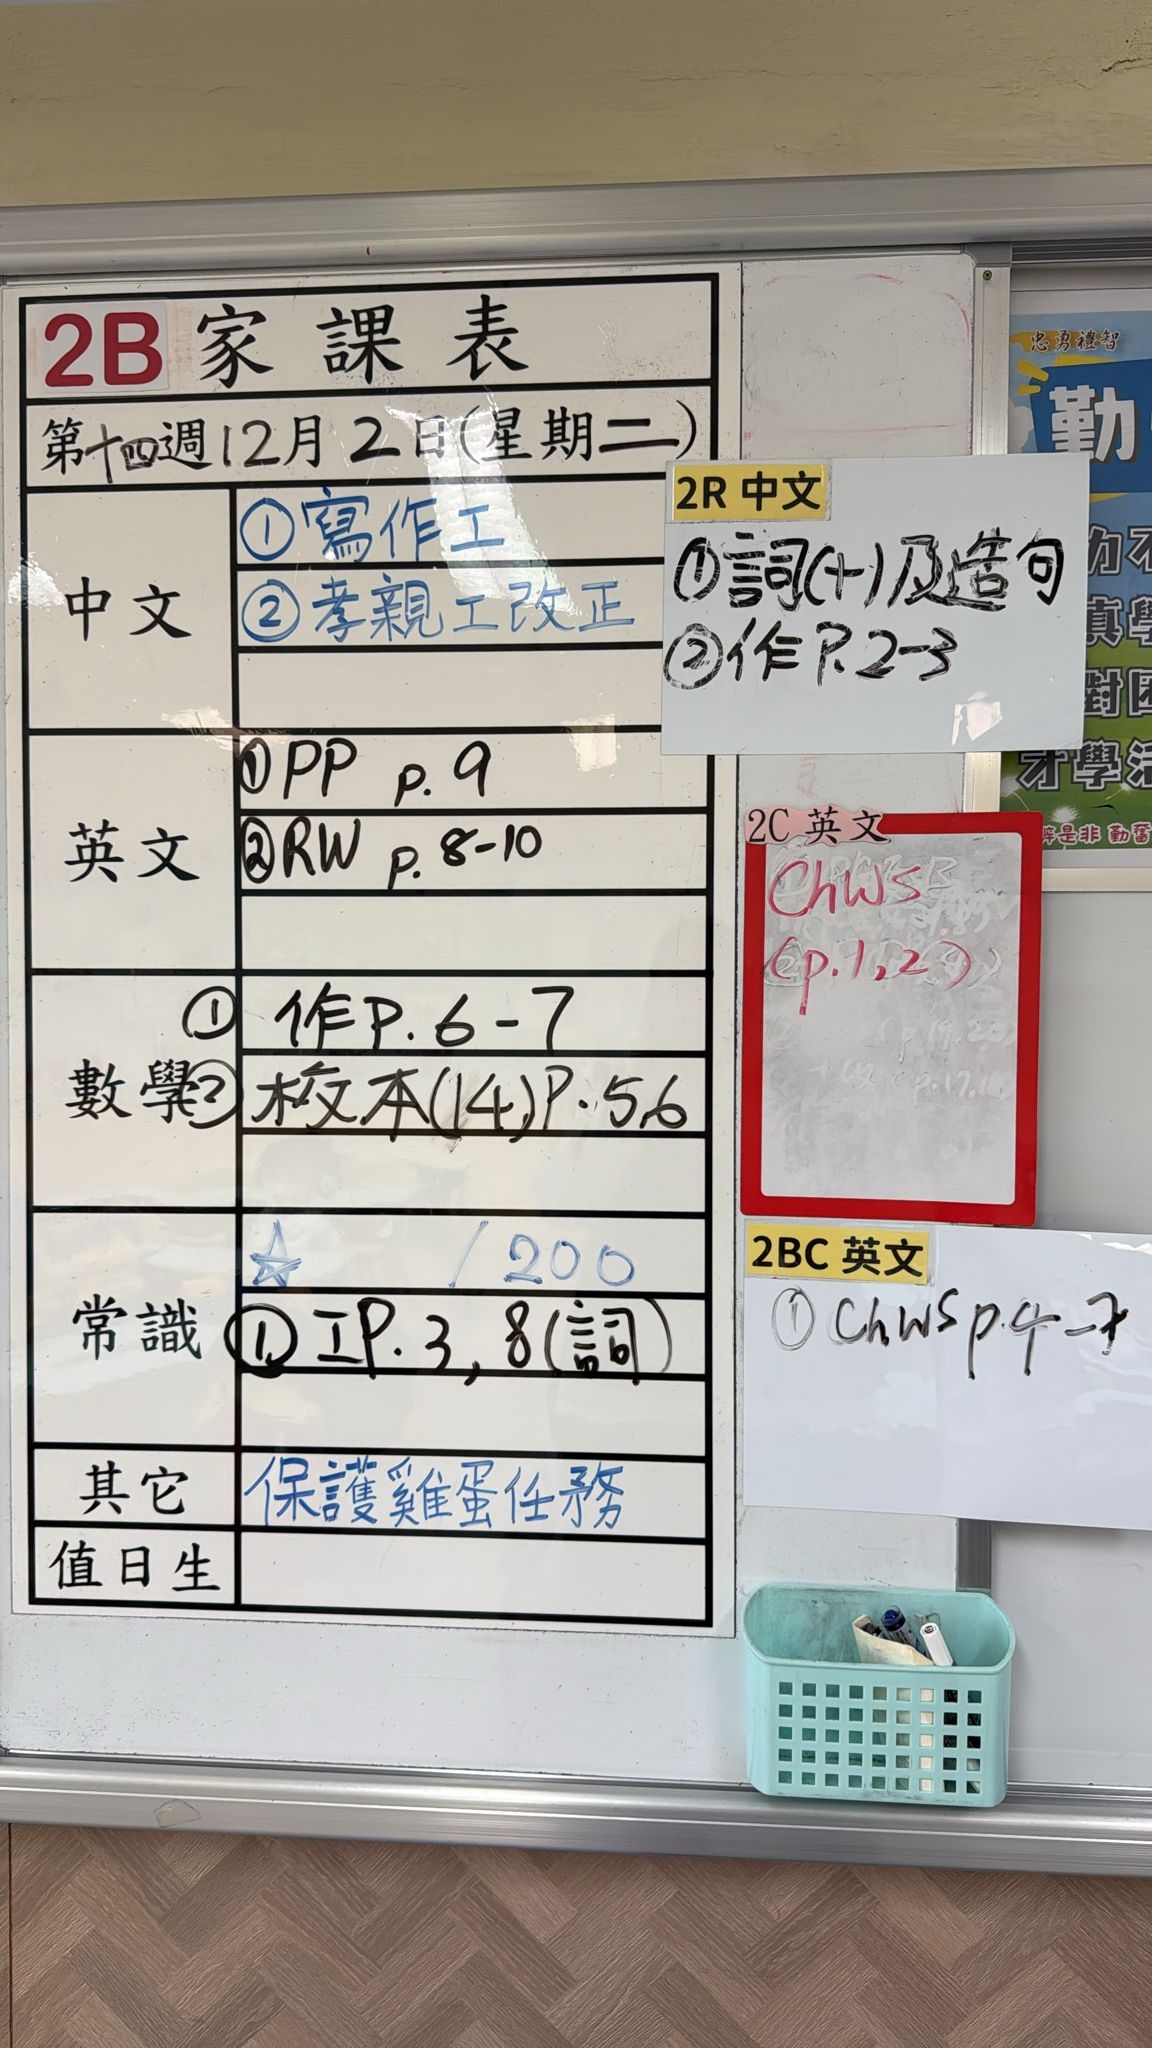 2B 家課表
第十四週12月2日(星期二)
中文
①寫作工
②孝親工改正
英文
①PP p.9
②RW p.8-10
數學
① 作P.6-7
② 校本(14)P.5,6
常識
☆ /200
①工P.3,8(詞)
其它
保護雞蛋任務
值日生
2R 中文
①詞(十)及造句
②作P.2-3
2C 英文
ChWS
(p.1,2)
2BC 英文
①ChWS p.4-7
忠勇禮智
勤